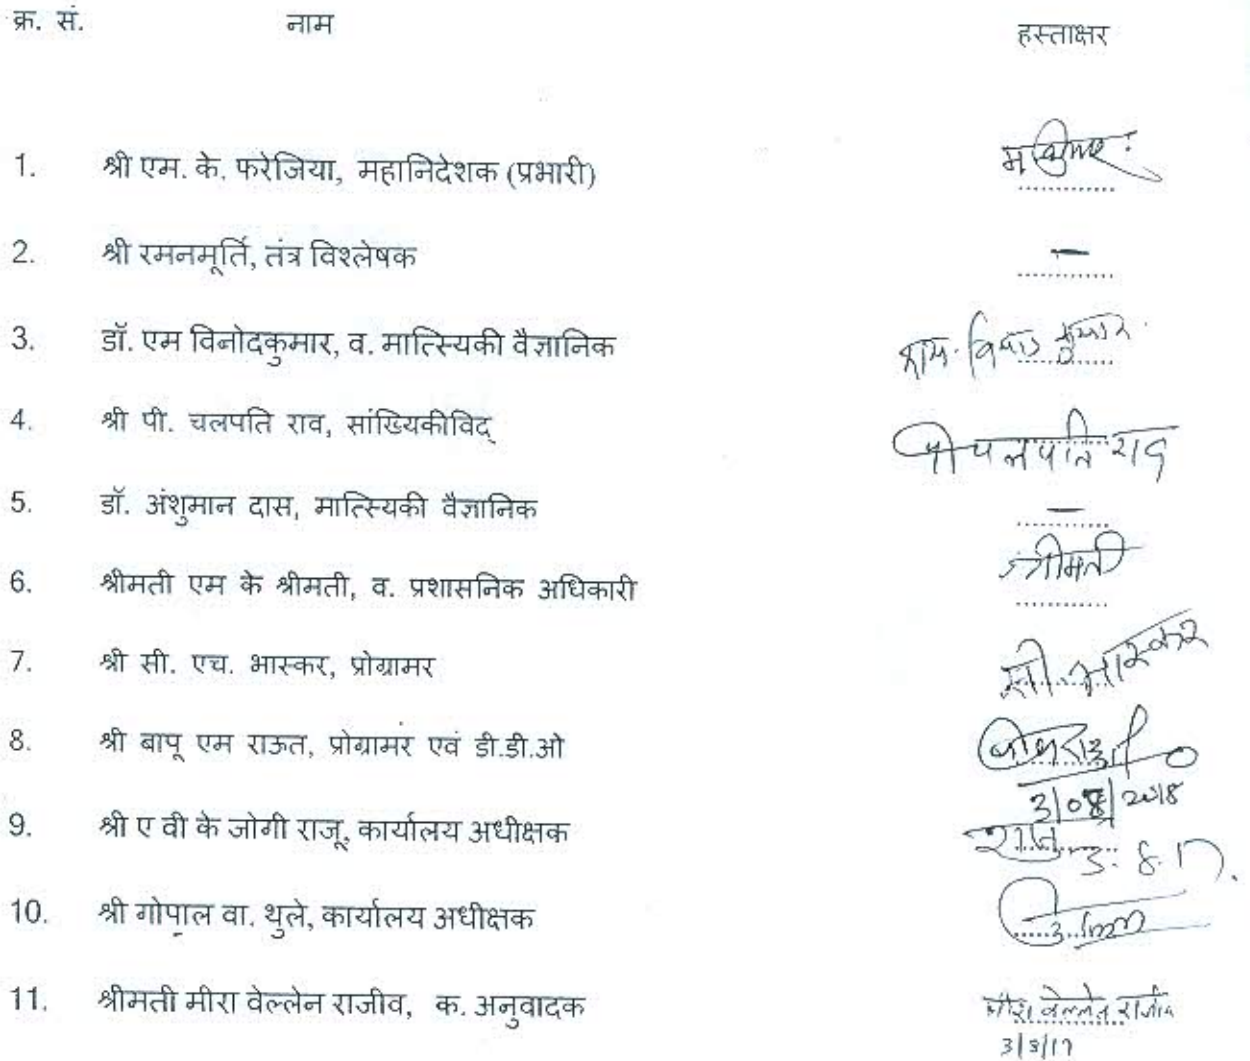 क्र. सं. नाम हस्ताक्षर
1. श्री एम. के. फरेजिया, महानिदेशक (प्रभारी)
2. श्री रमनमूर्ति, तंत्र विश्लेषक —
3. डॉ. एम विनोदकुमार, व. मात्स्यिकी वैज्ञानिक
4. श्री पी. चलपति राव, सांख्यिकीविद्
5. डॉ. अंशुमान दास, मात्स्यिकी वैज्ञानिक —
6. श्रीमती एम के श्रीमती, व. प्रशासनिक अधिकारी श्रीमती
7. श्री सी. एच. भास्कर, प्रोग्रामर सी. भास्कर
8. श्री बापू एम राऊत, प्रोग्रामर एवं डी.डी.ओ
3/08/2018
9. श्री ए वी के जोगी राजू, कार्यालय अधीक्षक राजु
3.8.17.
10. श्री गोपाल वा. थुले, कार्यालय अधीक्षक
11. श्रीमती मीरा वेल्लेन राजीव, क. अनुवादक मीरा वेल्लेन राजीव
3/8/17